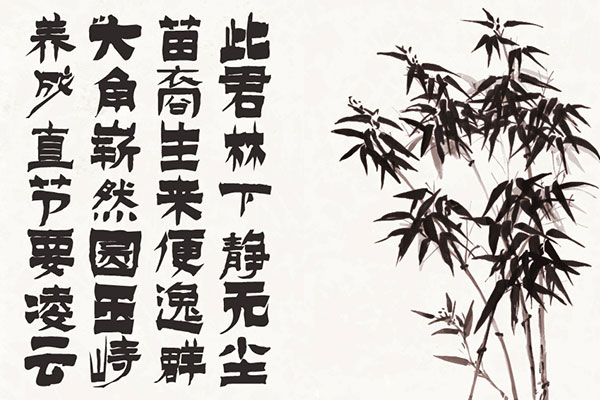 此君林下静无尘
苗裔生来便逸群
大角崭然圆玉峙
养成直节要凌云